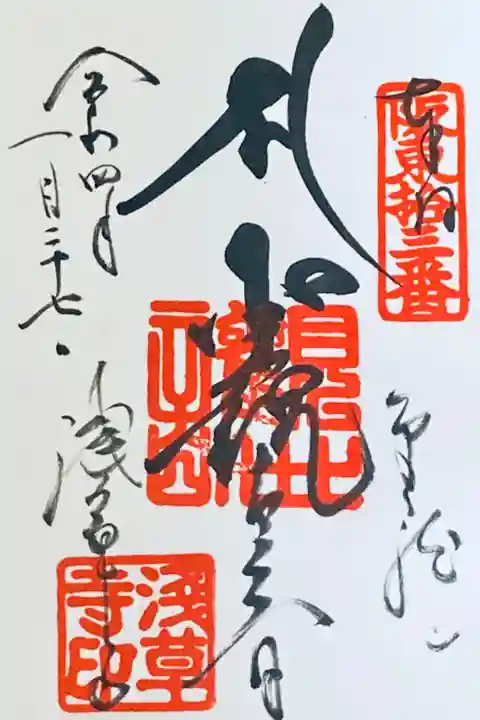 坂東拾三番
奉拝
金龍山
聖観世音
令和四年
一月二十七日
浅草寺
浅草寺印